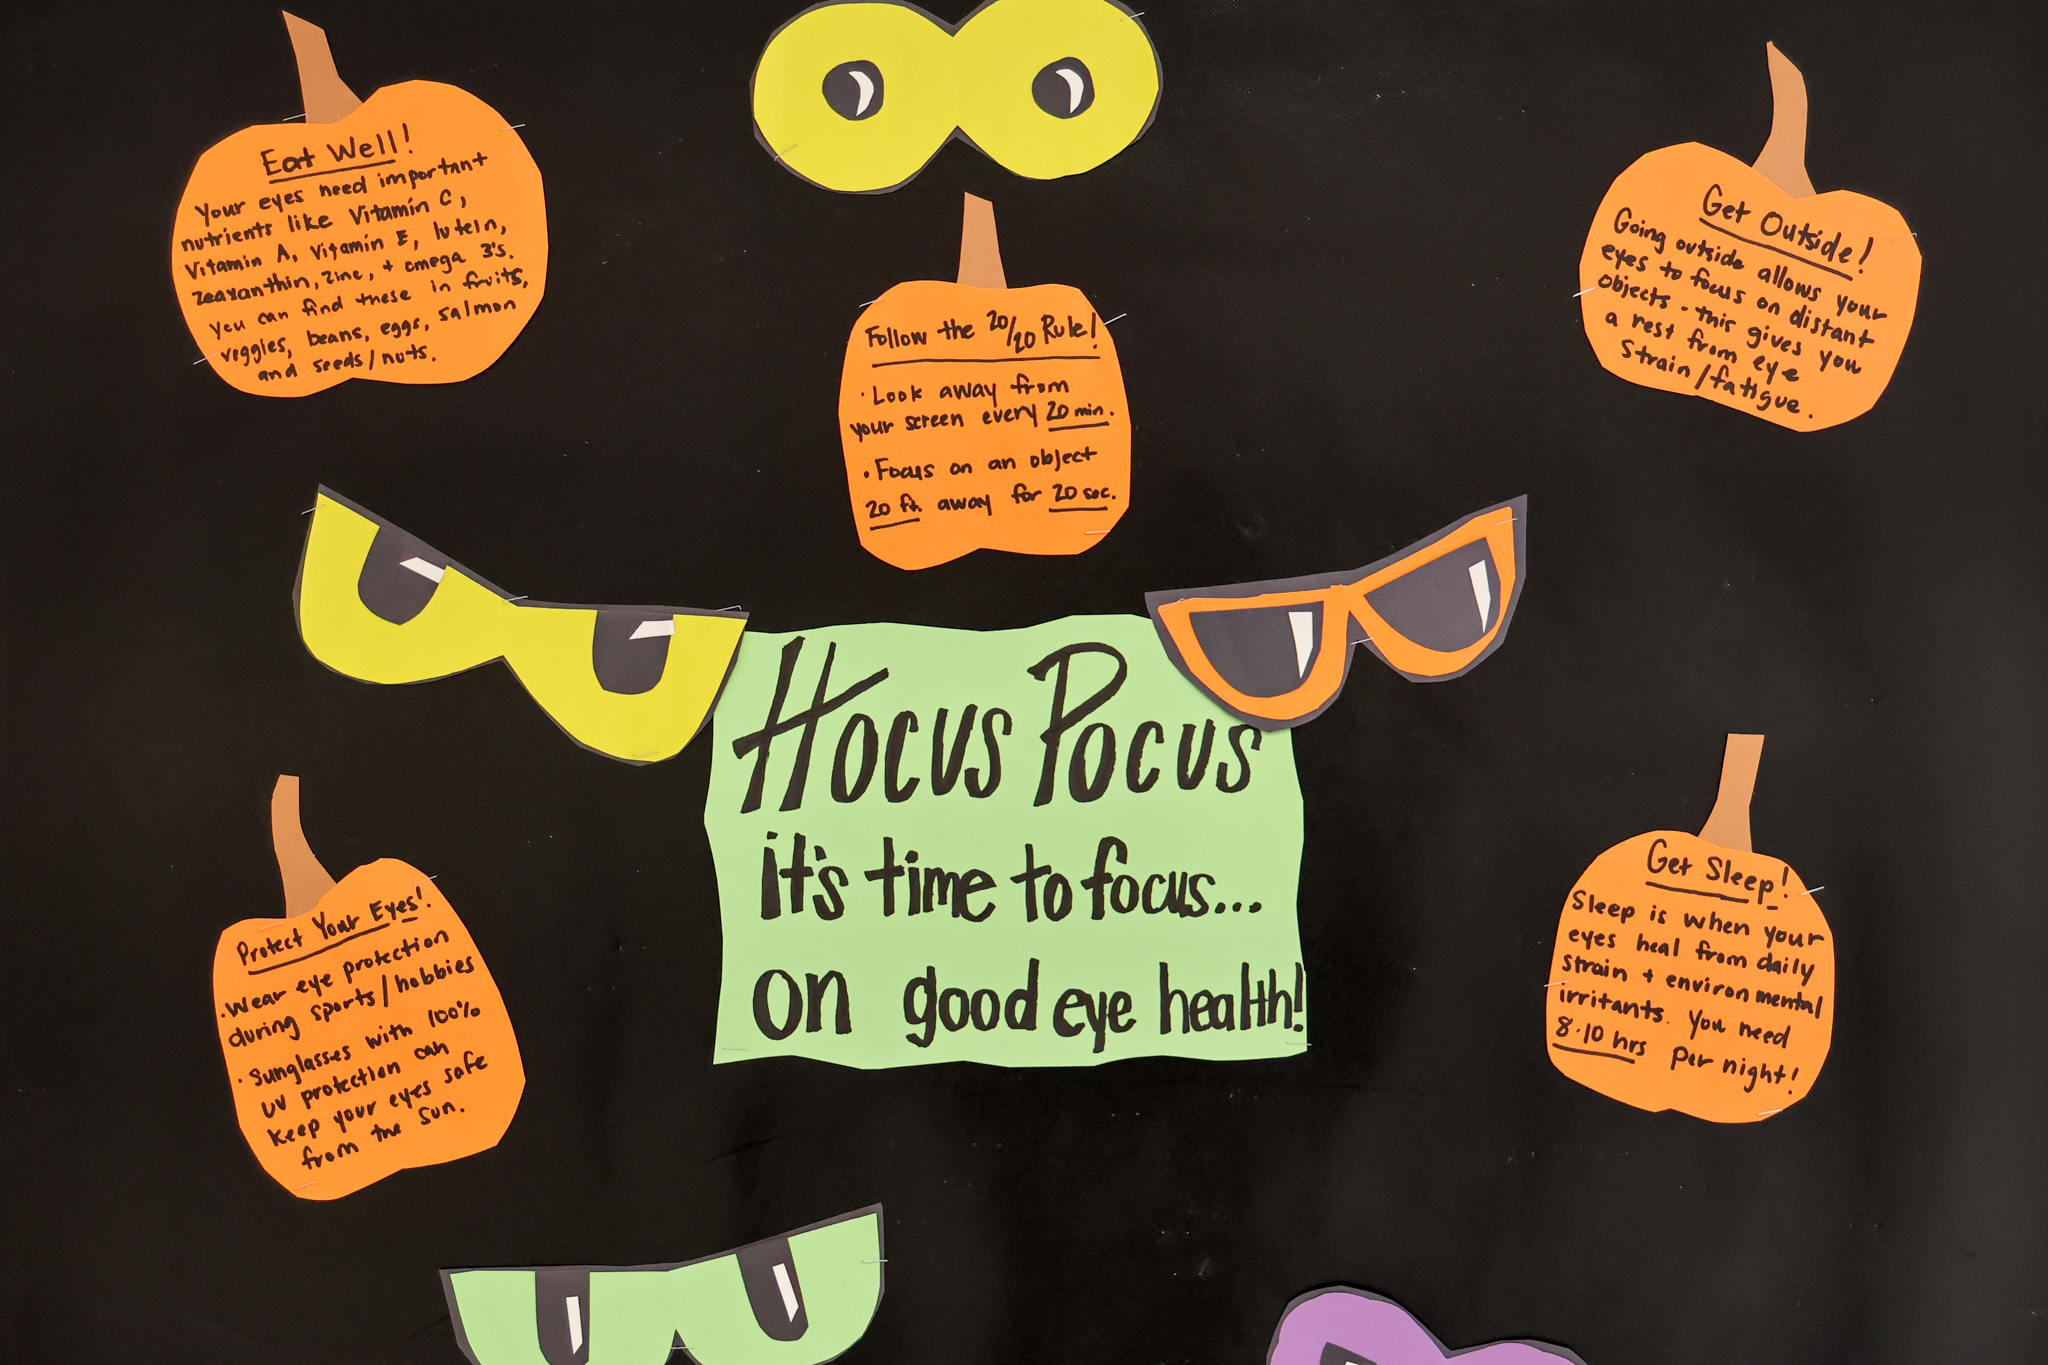 Eat Well!
Your eyes need important
nutrients like Vitamin C,
Vitamin A, Vitamin E, lutein,
zeaxanthin, zinc, + omega 3's.
You can find these in fruits,
veggies, beans, eggs, salmon
and seeds/nuts.
Follow the 20/20 Rule!
· Look away from
your screen every 20 min.
· Focus on an object
20 ft. away for 20 sec.
Get Outside!
Going outside allows your
eyes to focus on distant
objects - this gives you
a rest from eye
strain/fatigue.
Hocus Pocus
it's time to focus...
on good eye health!
Protect Your Eyes!
· Wear eye protection
during sports/hobbies
· Sunglasses with 100%
UV protection can
keep your eyes safe
from the sun.
Get Sleep!
Sleep is when your
eyes heal from daily
strain + environmental
irritants. You need
8-10 hrs per night!